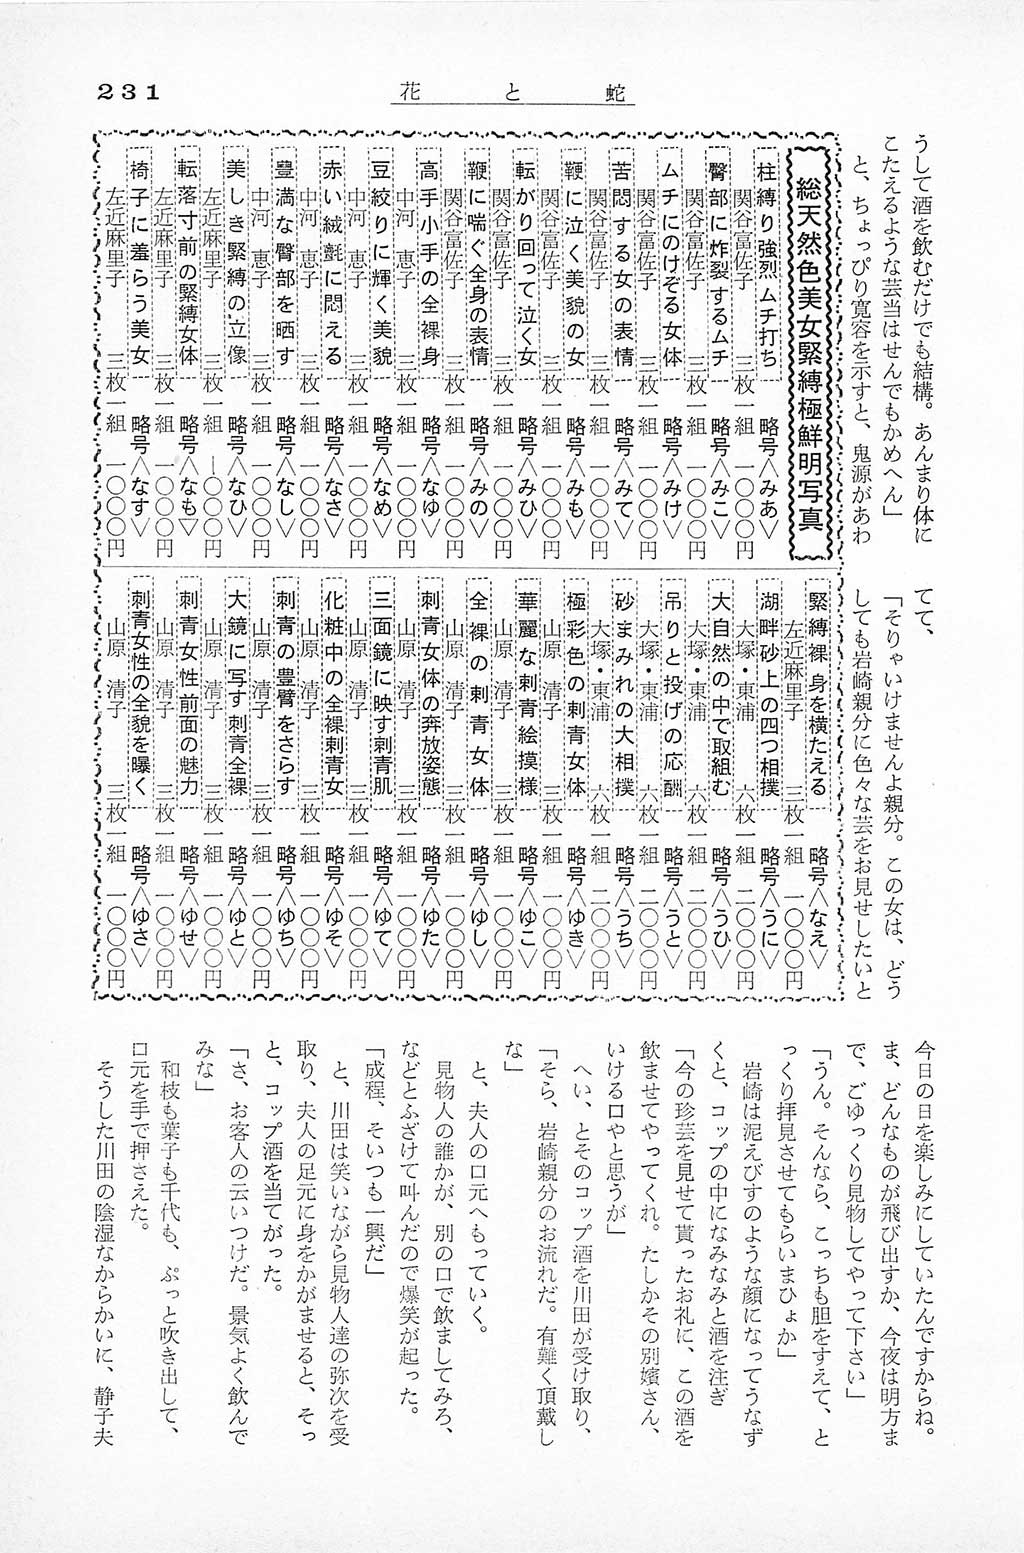 231
花と蛇
うして酒を飲むだけでも結構。あんまり体に
こたえるような芸当はせんでもかめへん」
と、ちょっぴり寛容を示すと、鬼源があわ
てて、
「そりゃいけませんよ親分。この女は、どう
しても岩崎親分に色々な芸をお見せしたいと
今日の日を楽しみにしていたんですからね。
ま、どんなものが飛び出すか、今夜は明方ま
で、ごゆっくり見物してやって下さい」
「うん。そんなら、こっちも胆をすえて、と
っくり拝見させてもらいまひょか」
岩崎は泥えびすのような顔になってうなず
くと、コップの中になみなみと酒を注ぎ
「今の珍芸を見せて貰ったお礼に、この酒を
飲ませてやってくれ。たしかその別嬪さん、
いける口やと思うが」
へい、とそのコップ酒を川田が受け取り、
「そら、岩崎親分のお流れだ。有難く頂戴し
な」
と、夫人の口元へもっていく。
見物人の誰かが、別の口で飲ましてみろ、
などとふざけて叫んだので爆笑が起った。
「成程、そいつも一興だ」
と、川田は笑いながら見物人達の弥次を受
取り、夫人の足元に身をかがませると、そっ
と、コップ酒を当てがった。
「さ、お客人の云いつけだ。景気よく飲んで
みな」
和枝も葉子も千代も、ぷっと吹き出して、
口元を手で押さえた。
そうした川田の陰湿なからかいに、静子夫
総天然色美女緊縛極鮮明写真
柱縛り強烈ムチ打ち 略号＜みあ＞
関谷富佐子 三枚一組 一〇〇〇円
臀部に炸裂するムチ 略号＜みこ＞
関谷富佐子 三枚一組 一〇〇〇円
ムチにのけぞる女体 略号＜みけ＞
関谷富佐子 三枚一組 一〇〇〇円
苦悶する女の表情 略号＜みて＞
関谷富佐子 三枚一組 一〇〇〇円
鞭に泣く美貌の女 略号＜みも＞
関谷富佐子 三枚一組 一〇〇〇円
転がり回って泣く女 略号＜みひ＞
関谷富佐子 三枚一組 一〇〇〇円
鞭に喘ぐ全身の表情 略号＜みの＞
関谷富佐子 三枚一組 一〇〇〇円
高手小手の全裸身 略号＜なゆ＞
中河 恵子 三枚一組 一〇〇〇円
豆絞りに輝く美貌 略号＜なめ＞
中河 恵子 三枚一組 一〇〇〇円
赤い絨毯に悶える 略号＜なさ＞
中河 恵子 三枚一組 一〇〇〇円
豊満な臀部を晒す 略号＜なし＞
中河 恵子 三枚一組 一〇〇〇円
美しき緊縛の立像 略号＜なひ＞
左近麻里子 三枚一組 一〇〇〇円
転落寸前の緊縛女体 略号＜なも＞
左近麻里子 三枚一組 一〇〇〇円
椅子に羞らう美女 略号＜なす＞
左近麻里子 三枚一組 一〇〇〇円
緊縛裸身を横たえる 略号＜なえ＞
左近麻里子 三枚一組 一〇〇〇円
湖畔砂上の四つ相撲 略号＜うに＞
大塚・東浦 六枚一組 二〇〇〇円
大自然の中で取組む 略号＜うひ＞
大塚・東浦 六枚一組 二〇〇〇円
吊りと投げの応酬 略号＜うと＞
大塚・東浦 六枚一組 二〇〇〇円
砂まみれの大相撲 略号＜うち＞
大塚・東浦 六枚一組 二〇〇〇円
極彩色の刺青女体 略号＜ゆき＞
山原 清子 三枚一組 一〇〇〇円
華麗な刺青絵摸様 略号＜ゆこ＞
山原 清子 三枚一組 一〇〇〇円
全裸の刺青女体 略号＜ゆし＞
山原 清子 三枚一組 一〇〇〇円
刺青女体の奔放姿態 略号＜ゆた＞
山原 清子 三枚一組 一〇〇〇円
三面鏡に映す刺青肌 略号＜ゆて＞
山原 清子 三枚一組 一〇〇〇円
化粧中の全裸刺青女 略号＜ゆそ＞
山原 清子 三枚一組 一〇〇〇円
刺青の豊臂をさらす 略号＜ゆち＞
山原 清子 三枚一組 一〇〇〇円
大鏡に写す刺青全裸 略号＜ゆと＞
山原 清子 三枚一組 一〇〇〇円
刺青女性前面の魅力 略号＜ゆせ＞
山原 清子 三枚一組 一〇〇〇円
刺青女性の全貌を曝く 略号＜ゆさ＞
山原 清子 三枚一組 一〇〇〇円